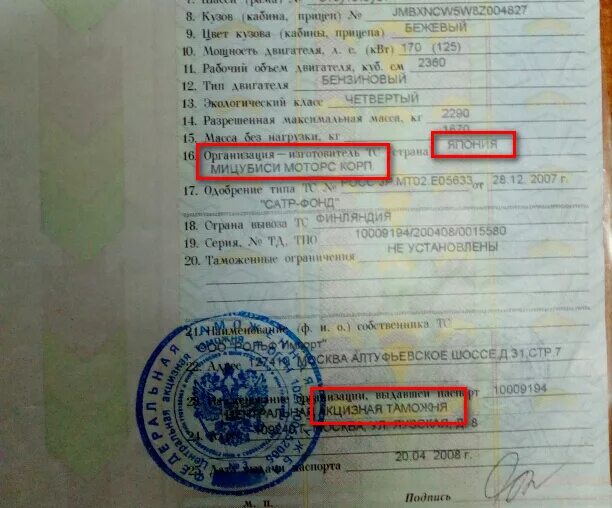 8. Кузов (кабина, прицеп) № JMBXNCW5W8Z004827
9. Цвет кузова (кабины, прицепа) БЕЖЕВЫЙ
10. Мощность двигателя, л. с. (кВт) 170 (125)
11. Рабочий объем двигателя, куб. см 2360
12. Тип двигателя БЕНЗИНОВЫЙ
13. Экологический класс ЧЕТВЕРТЫЙ
14. Разрешенная максимальная масса, кг 2290
15. Масса без нагрузки, кг 1670
16. Организация—изготовитель ТС (страна) ЯПОНИЯ
МИЦУБИСИ МОТОРС КОРП.
17. Одобрение типа ТС № РОСС JP.MT02.E05633 от 28.12.2007 г.
"САТР-ФОНД"
18. Страна вывоза ТС ФИНЛЯНДИЯ
19. Серия, № ТД, ТПО 10009194/200408/0015580
20. Таможенные ограничения НЕ УСТАНОВЛЕНЫ
21. Наименование (ф. и о.) собственника ТС
ООО "РОЛЬФ Импорт"
22. МОСКВА АЛТУФЬЕВСКОЕ ШОССЕ,Д 31,СТР.7
23. организации, выдавшей паспорт 10009194
ЦЕНТРАЛЬНАЯ АКЦИЗНАЯ ТАМОЖНЯ
24. МОСКВА, УЛ.
25. Дата выдачи паспорта 20.04.2008 г.
М. П. Подпись